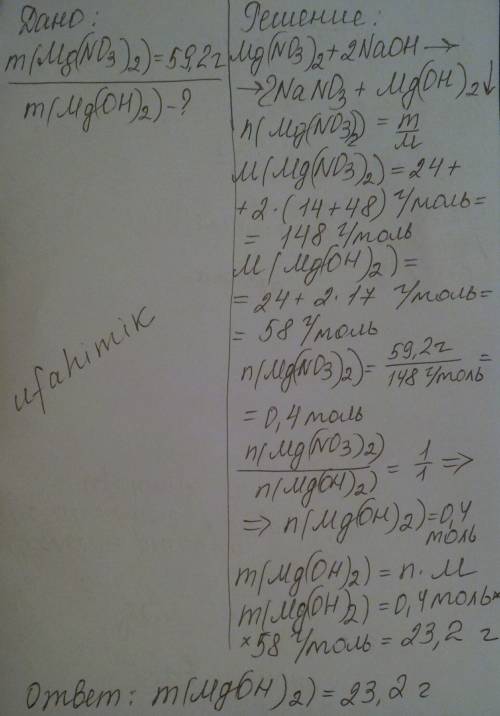 Дано:
m(Mg(NO3)2)=59,2г
m(Mg(OH)2)-?
ufahimik
Решение:
Mg(NO3)2+2NaOH→
→2NaNO3+Mg(OH)2↓
n(Mg(NO3)2)=m/M
M(Mg(NO3)2)=24+
+2·(14+48) г/моль=
= 148 г/моль
M(Mg(OH)2)=
=24+2·17 г/моль=
=58 г/моль
n(Mg(NO3)2)=59,2г/148 г/моль=
=0,4 моль
n(Mg(NO3)2)/n(Mg(OH)2)=1/1⇒
⇒n(Mg(OH)2)=0,4
моль
m(Mg(OH)2)=n·M
m(Mg(OH)2)=0,4моль×
×58 г/моль=23,2 г
Ответ: m(Mg(OH)2)=23,2 г